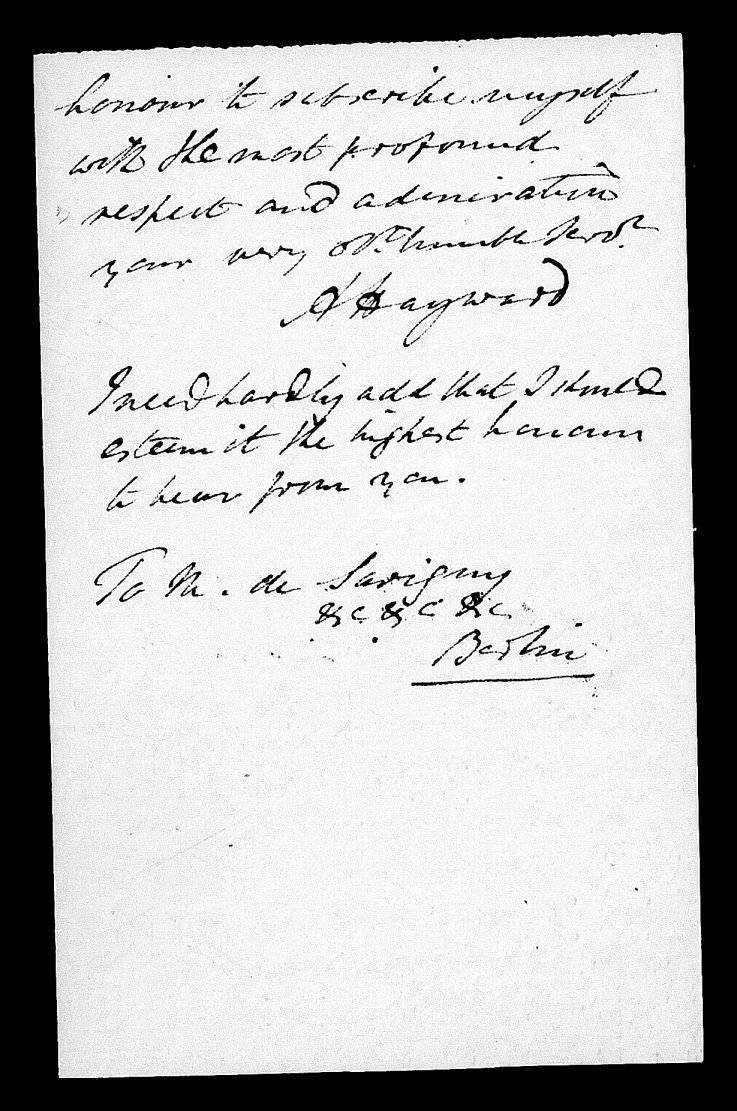 honour to subscribe myself
with the most profound
respect and admiration
your very obt. humble Servt.
A Hayward
I need hardly add that I should
esteem it the highest honour
to hear from you.
To M. de Savigny
&c &c &c
Berlin